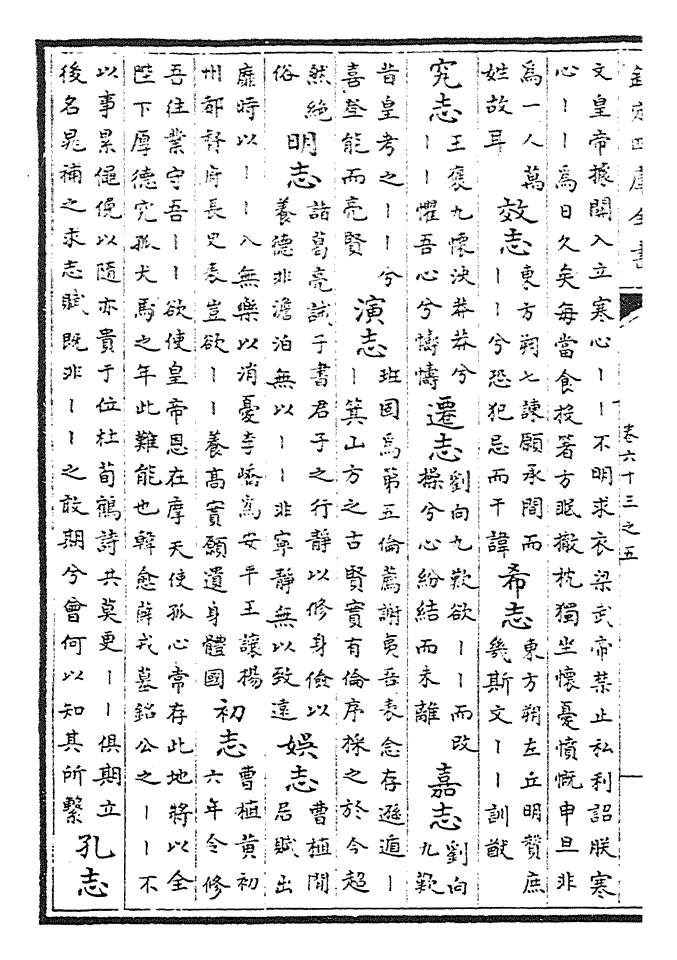 欽定四庫全書
卷六十三之五
文皇帝據關入立寒心丨丨不明求衣梁武帝禁止私利詔朕寒
心丨丨為日久矣每當食投箸方眠撤枕獨坐懷憂憤慨申旦非
為一人萬
姓故耳
效志
東方朔七諫願承間而
丨丨兮恐犯忌而干諱
希志
東方朔左丘明贊庶
幾斯文丨丨訓猷
究志
王褒九懷泱莽莽兮
丨丨懼吾心兮懤懤
遷志
劉向九歎欲丨丨而改
操兮心紛結而未離
嘉志
劉向
九歎
昔皇考之丨丨兮
喜登能而亮賢
演志
班固為第五倫薦謝夷吾表念存遜遁丨
丨箕山方之古賢實有倫序採之於今超
然絶
俗
明志
諸葛亮誡子書君子之行靜以修身儉以
養德非澹泊無以丨丨非寧靜無以致遠
娛志
曹植閒
居賦出
靡時以丨丨入無樂以消憂李嶠為安平王讓楊
州都督府長史表豈欲丨丨養高實願遺身體國
初志
曹植黃初
六年令修
吾往業守吾丨丨欲使皇帝恩在摩天使孤心常存此地將以全
陛下厚德究孤犬馬之年此難能也韓愈薛戎墓銘公之丨丨不
以事累僶俛以隨亦貴于位杜荀鶴詩共莫更丨丨俱期立
後名晁補之求志賦既非丨丨之敢期兮曾何以知其所繫
孔志